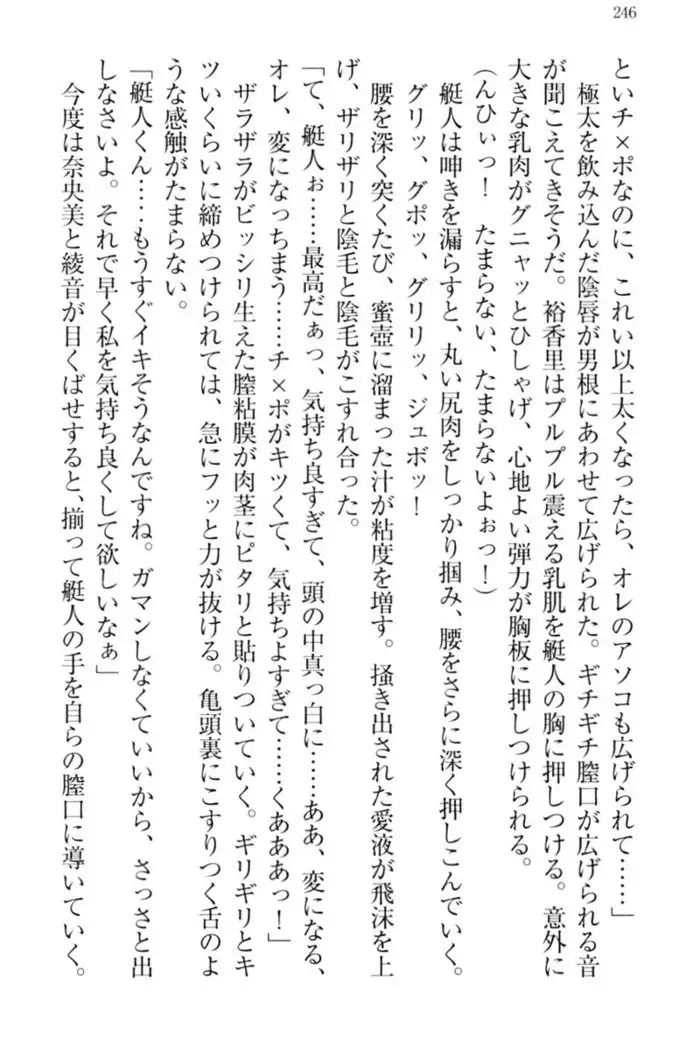 246
といチ×ポなのに、これい以上太くなったら、オレのアソコも広げられて……」
極太を飲み込んだ陰唇が男根にあわせて広げられた。ギチギチ膣口が広げられる音
が聞こえてきそうだ。裕香里はプルプル震える乳肌を艇人の胸に押しつける。意外に
大きな乳肉がグニャッとひしゃげ、心地よい弾力が胸板に押しつけられる。
（んひぃっ！　たまらない、たまらないよぉっ！）
艇人は呻きを漏らすと、丸い尻肉をしっかり掴み、腰をさらに深く押しこんでいく。
グリッ、グポッ、グリリッ、ジュボッ！
腰を深く突くたび、蜜壺に溜まった汁が粘度を増す。掻き出された愛液が飛沫を上
げ、ザリザリと陰毛と陰毛がこすれ合った。
「て、艇人ぉ……最高だぁっ、気持ち良すぎて、頭の中真っ白に……ああ、変になる、
オレ、変になっちまう……チ×ポがキツくて、気持ちよすぎて……くあああっ！」
ザラザラがビッシリ生えた膣粘膜が肉茎にピタリと貼りついていく。ギリギリとキ
ツいくらいに締めつけられては、急にフッと力が抜ける。亀頭裏にこすりつく舌のよ
うな感触がたまらない。
「艇人くん……もうすぐイキそうなんですね。ガマンしなくていいから、さっさと出
しなさいよ。それで早く私を気持ち良くして欲しいなぁ」
今度は奈央美と綾音が目くばせすると、揃って艇人の手を自らの膣口に導いていく。